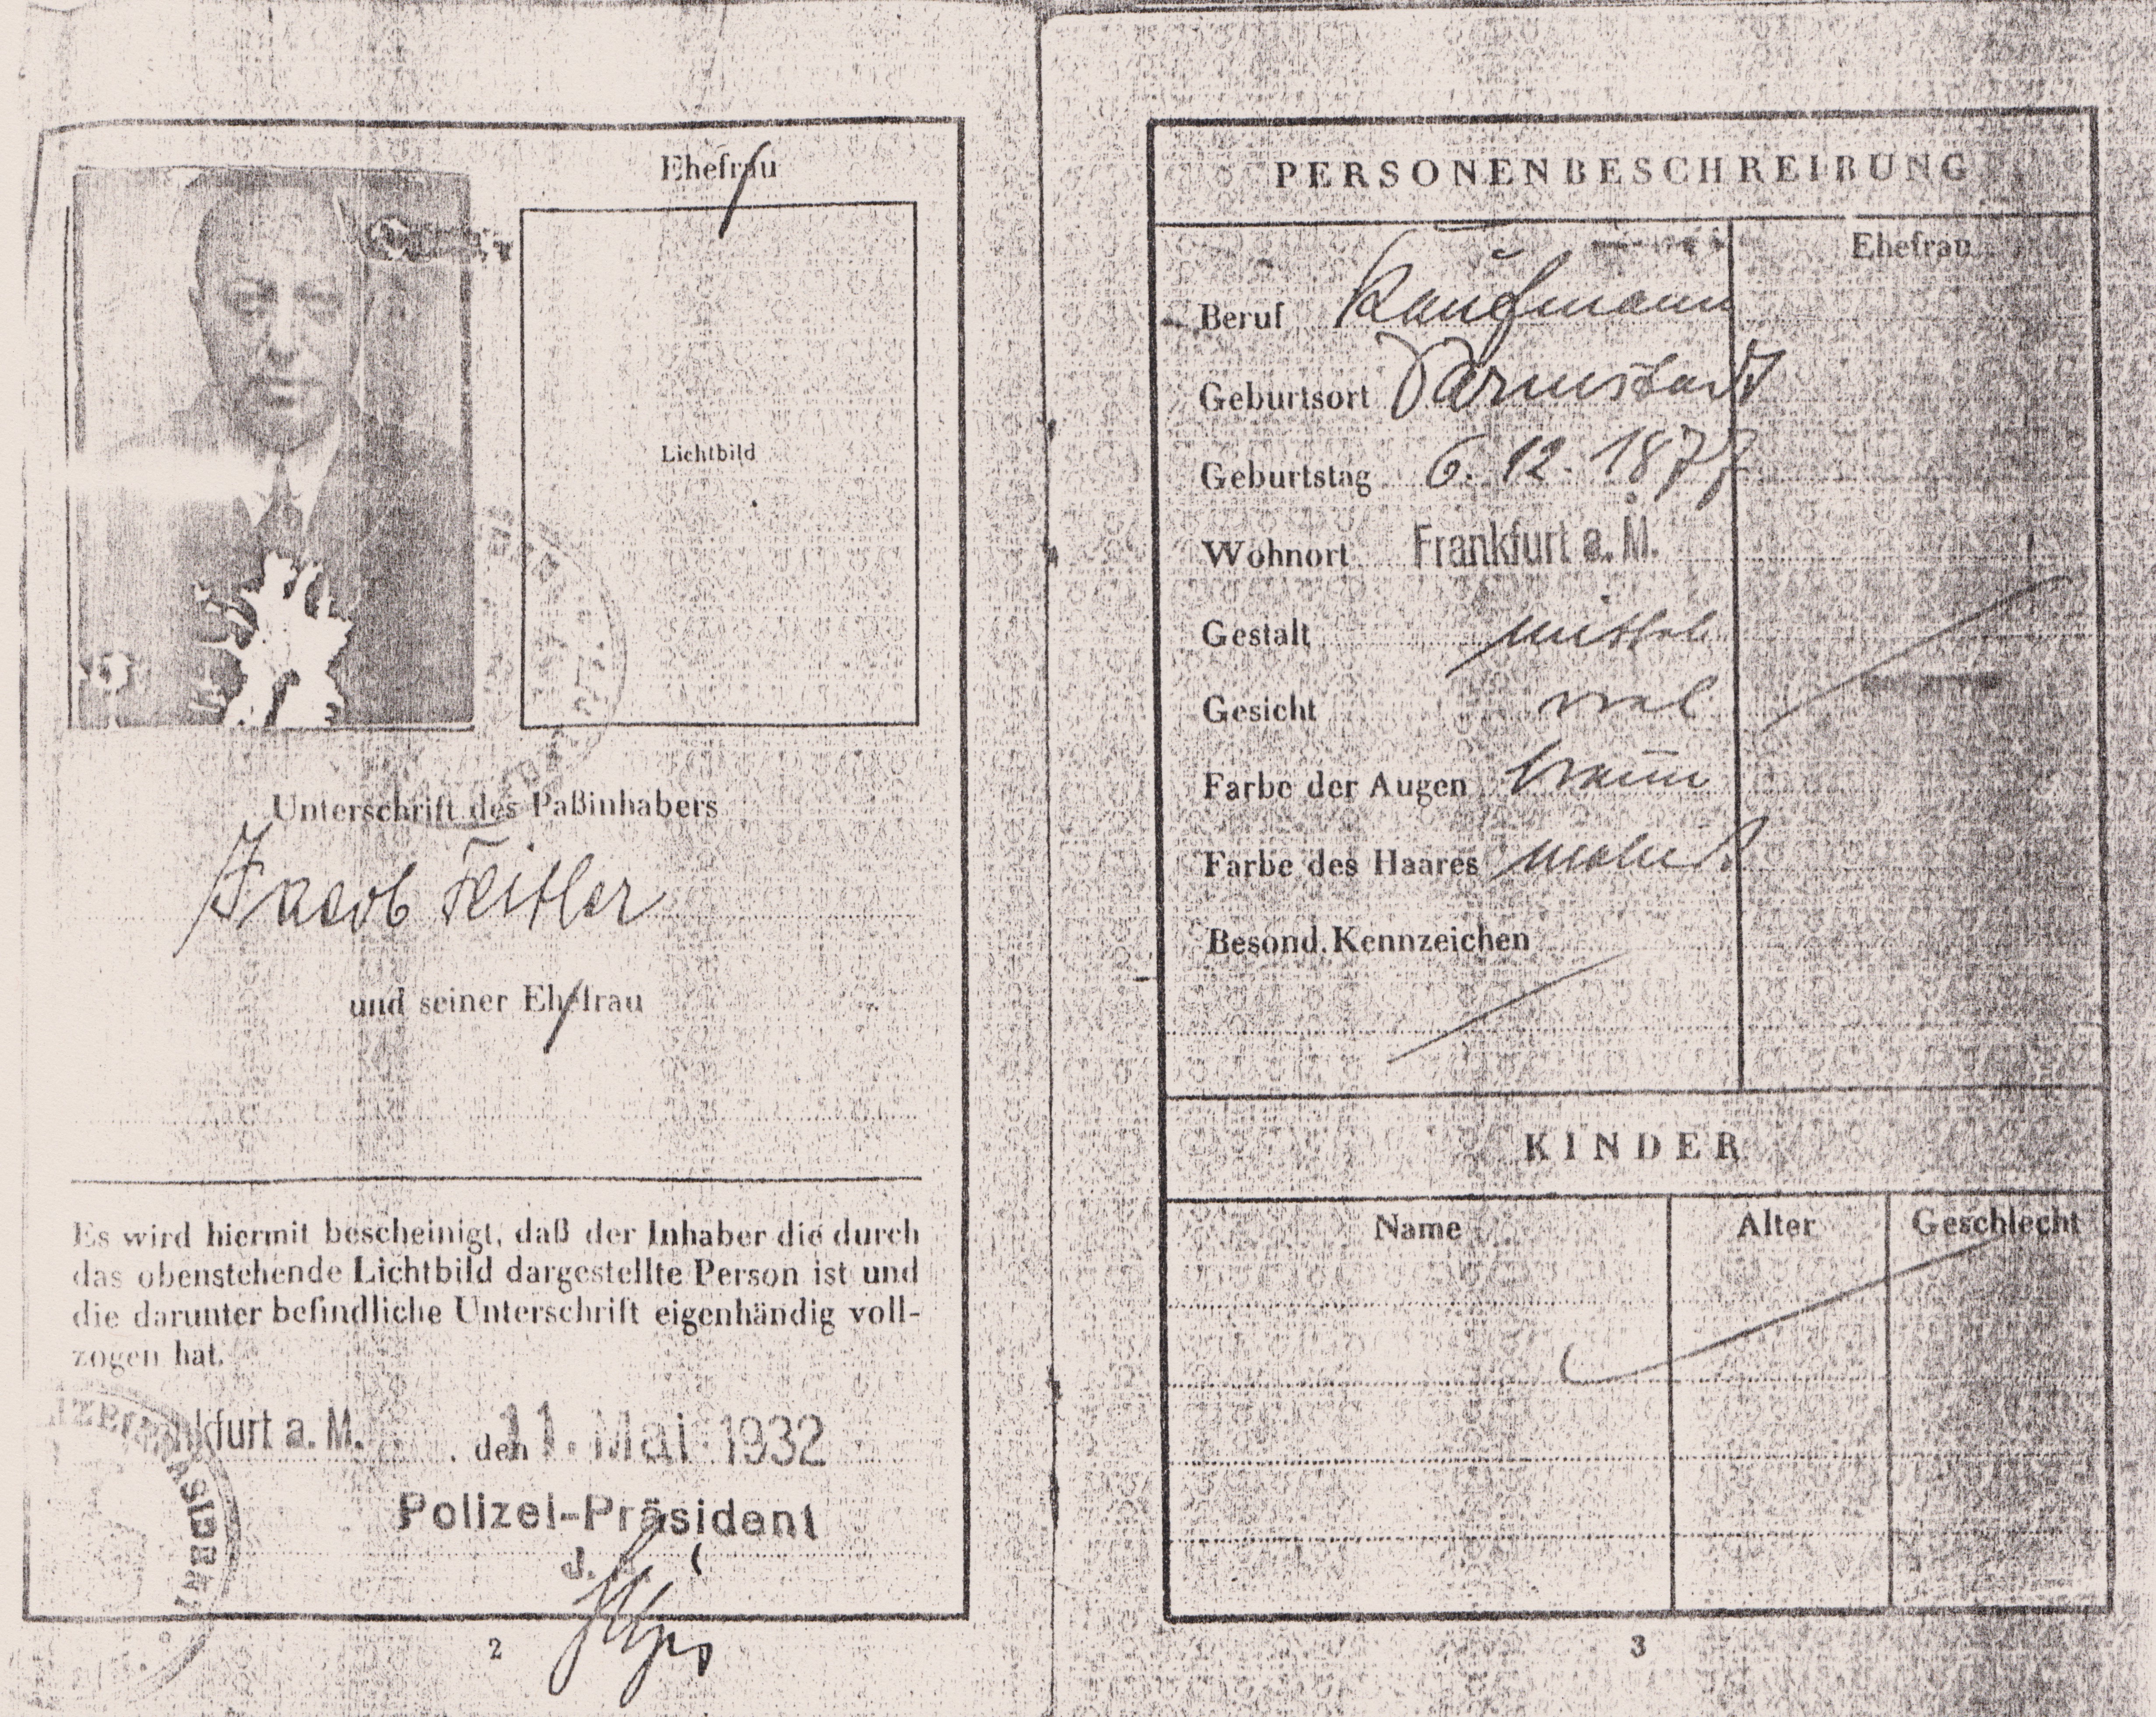 Ehefrau
Lichtbild
Unterschrift des Paßinhabers
Jacob Feitler
und seiner Ehefrau
Es wird hiermit bescheinigt, daß der Inhaber die durch
das obenstehende Lichtbild dargestellte Person ist und
die darunter befindliche Unterschrift eigenhändig voll-
zogen hat.
kfurt a. M. , den 11. Mai 1932
Polizei-Präsident
2
PERSONENBESCHREIBUNG
Ehefrau
Beruf Kaufmann
Geburtsort Darmstadt
Geburtstag 6. 12. 1877
Wohnort Frankfurt a. M.
Gestalt mittel
Gesicht oval
Farbe der Augen braun
Farbe des Haares meliert
Besond. Kennzeichen
KINDER
Name Alter Geschlecht
3